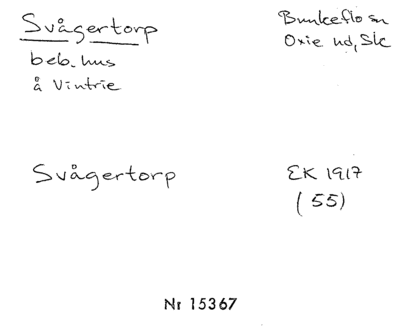 Svågertorp
Bunkeflo sn
Oxie hd, Sk
beb. hus
å Vintrie
Svågertorp
EK 1917
(55)
Nr 15367